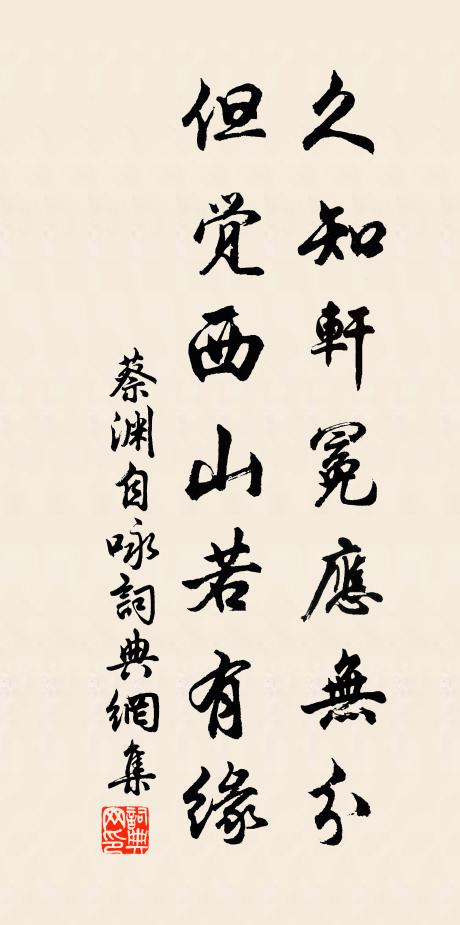 久知軒冕應無分
但覚西山若有緣
蔡渊自咏詞典網集
詞典网印